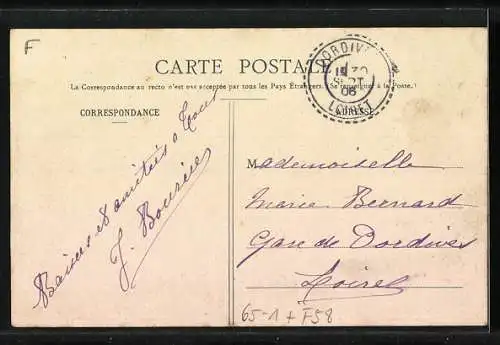 F
CARTE POSTALE
La Correspondance au recto n'est pas acceptée par tous les Pays Étrangers. Se renseigner à la Poste.
CORRESPONDANCE
ADRESSE
DORDIVES
30
SEPT
06
LOIRET
Baisers et amitiés à tous
J. Bourée
Mademoiselle
Marie Bernard
Gare de Dordives
Loiret
65-1 + F58